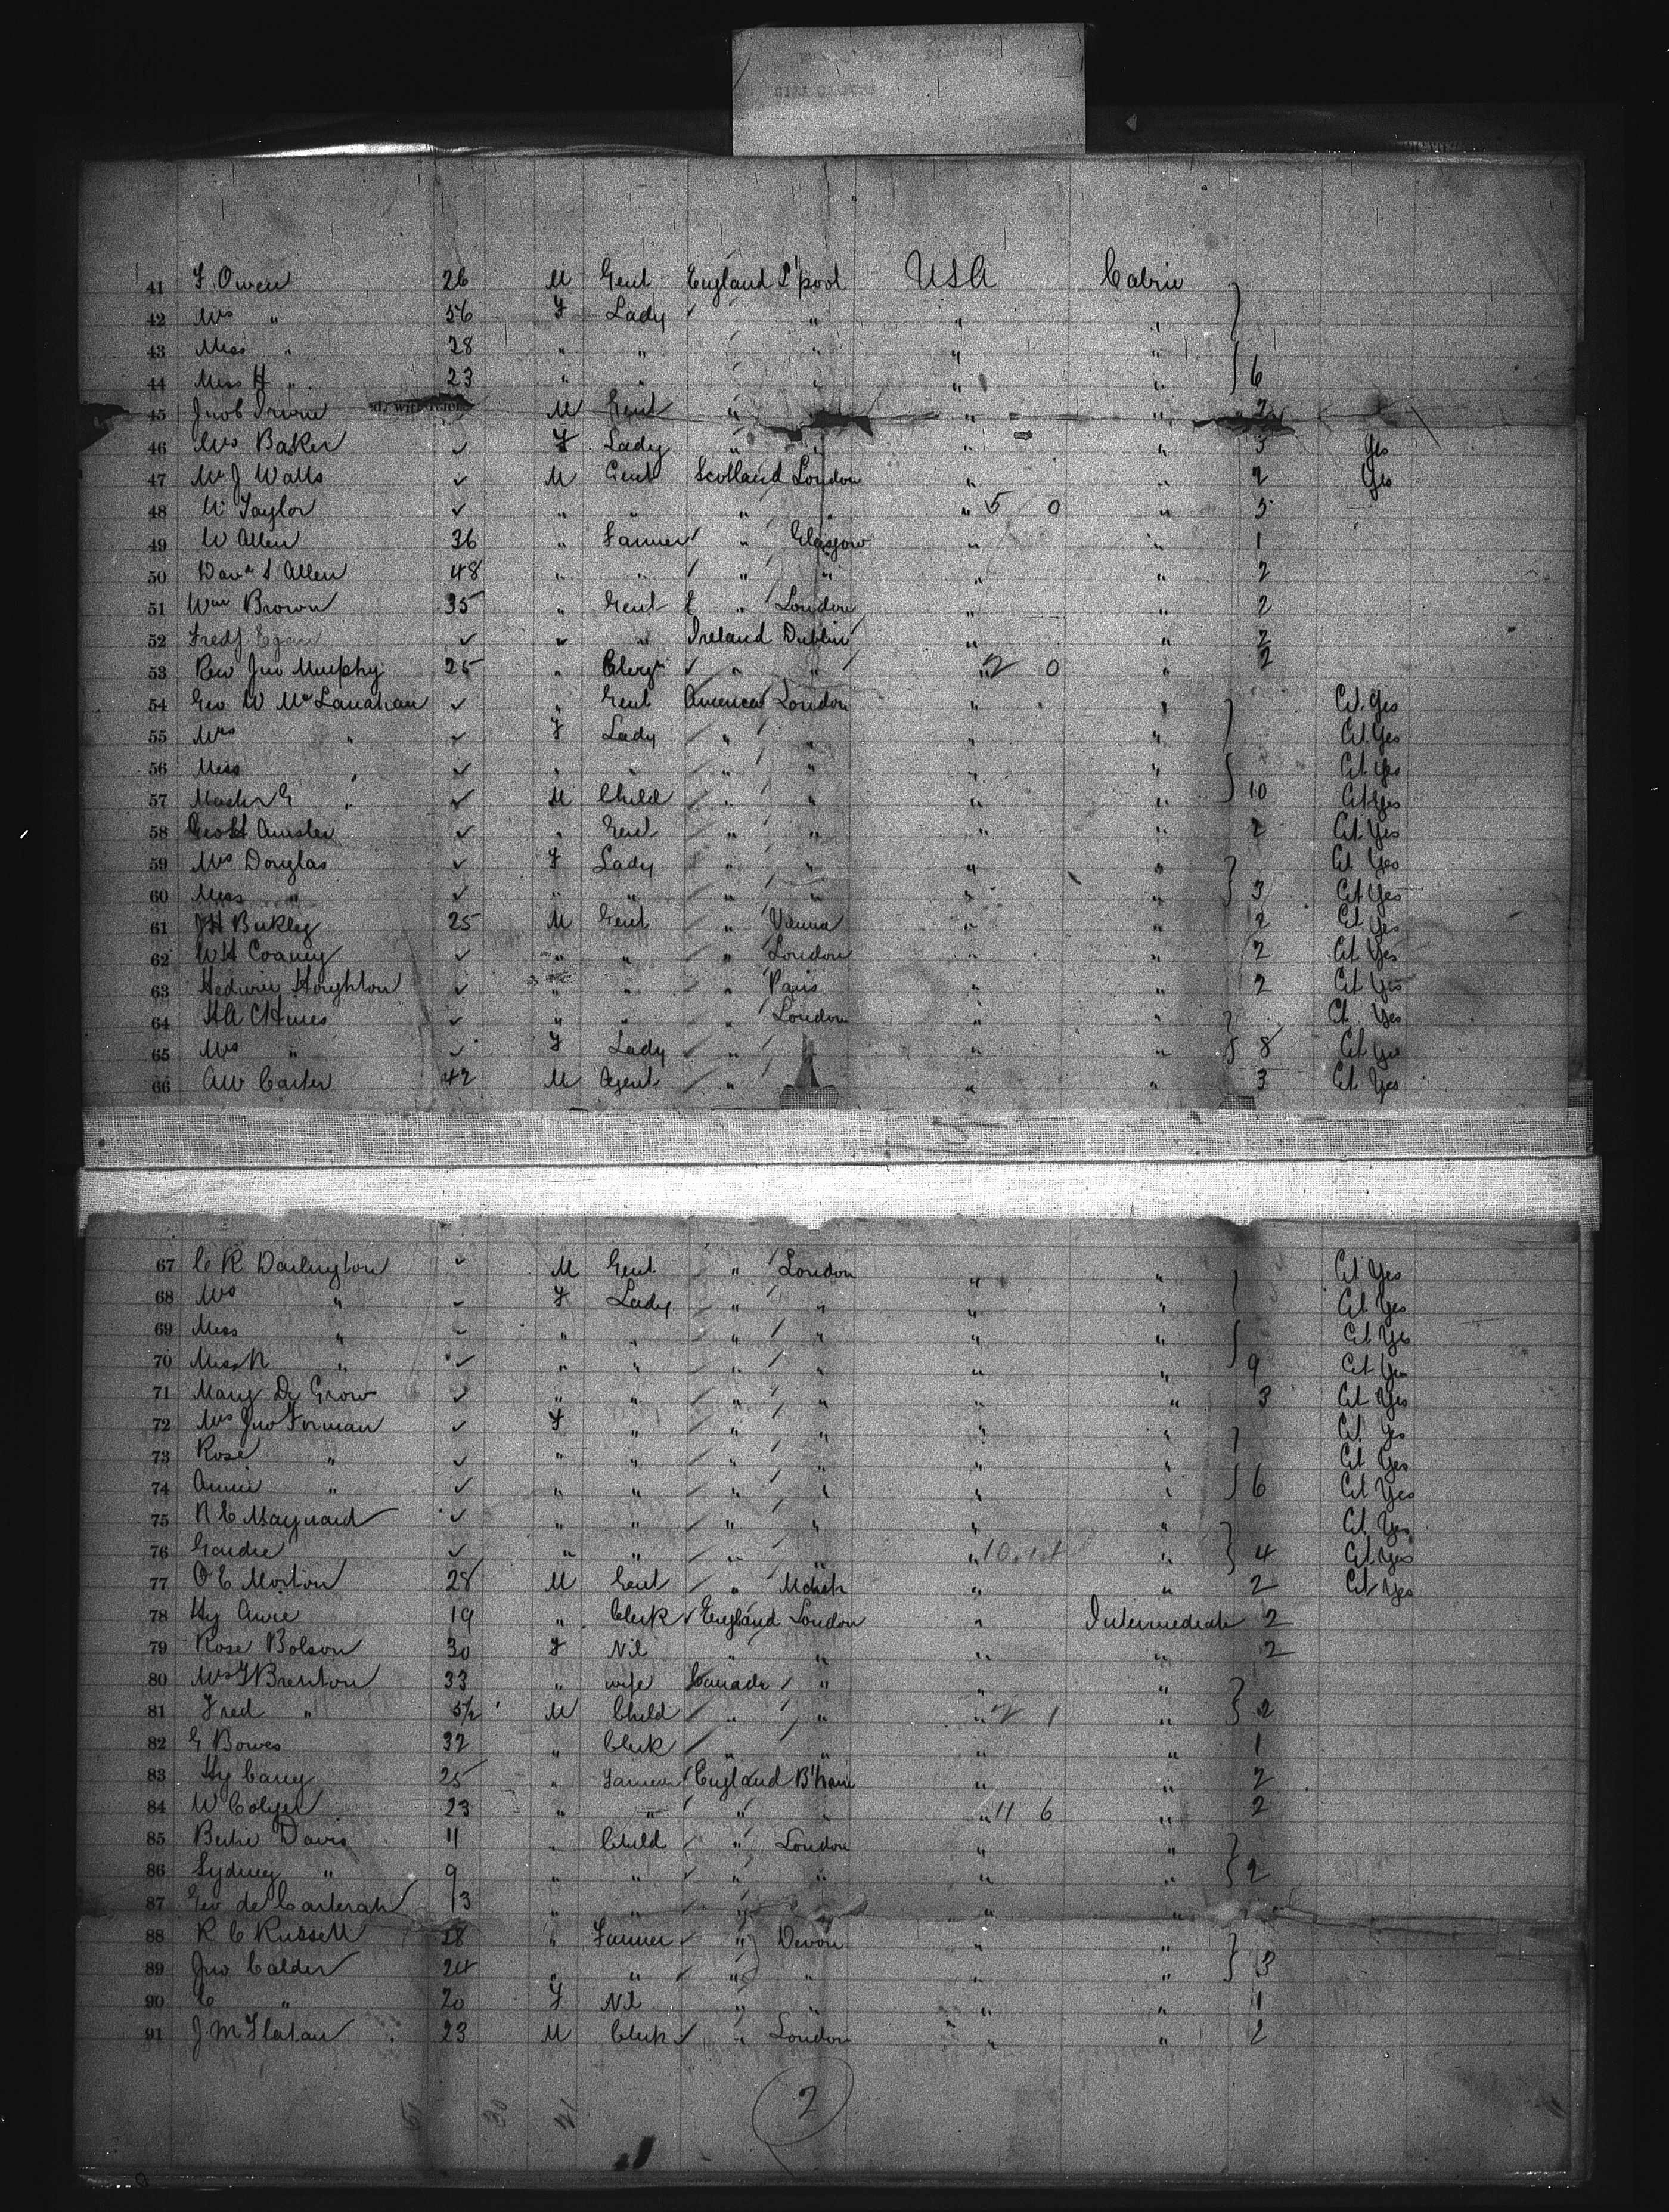 41 F. Owen 26 M Gent England L'pool USA Cabin
42 Mrs " 56 F Lady " " "
43 Miss " 28 " " " " "
44 Miss H " 23 " " " " " 6
45 Irwine M Gent " " " 2
46 Mrs Baker ✓ F Lady " " " " 3 Yes
47 Mr J Watts ✓ M Gent Scotland London " " 2 Yes
48 Mr Taylor ✓ " " " " " 5 0 " 3
49 W Allen 36 " Farmer " Glasgow " " 1
50 Davd S Allen 48 " " " " " " 2
51 Wm Brown 35 " Gent " London " " 2
52 Fredk Egan ✓ " " Ireland Dublin " " 2
53 Rev Jno Murphy 25 " Clergy " " " 2 0 " 2
54 Geo W McLanahan ✓ " Gent America London " " Cit. Yes
55 Mrs " ✓ F Lady " " " " Cit. Yes
56 Miss " ✓ " " " " " " Cit Yes
57 Master G " ✓ M Child " " " " 10 Cit Yes
58 Geo H ✓ " Gent " " " " 2 Cit. Yes
59 Mrs Douglas ✓ F Lady " " " " Cit Yes
60 Miss " ✓ " " " " " " 3 Cit Yes
61 25 M Gent " Vienna " " 2 Cit Yes
62 W H ✓ " " " London " " 2 Cit. Yes
63 Houghton ✓ " " " Paris " " 2 Cit Yes
64 ✓ " " " London " " Cit. Yes
65 Mrs " ✓ F Lady " " " 8 Cit Yes
66 A W Carter 42 M Agent " " " 3 Cit. Yes
67 C R Darlington ✓ M Gent " London " " Cit Yes
68 Mrs " ✓ F Lady " " " " Cit. Yes
69 Miss " ✓ " " " " " " Cit Yes
70 Miss N " ✓ " " " " " " 9 Cit Yes
71 Mary De Grow ✓ " " " " " " 3 Cit Yes
72 Mrs Jno Forman ✓ F " " " " " Cit. Yes
73 Rose " ✓ " " " " " " Cit Yes
74 Annie " ✓ " " " " " " 6 Cit Yes
75 N E Maynard ✓ " " " " " " Cit. Yes
76 ✓ " " " " " " 4 Cit. Yes
77 O E Morton 28 M Gent " " " 2 Cit Yes
78 Hy 19 " Clerk England London " Intermediate 2
79 Rose Bolson 30 F Nil " " " " 2
80 Mrs Brenton 33 " wife Canada " " "
81 Fred " 5½ M Child " " " 2 1 " 2
82 G Bowes 32 " Clerk " " " " 1
83 Hy Carey 25 " Farmer England B'ham " " 2
84 W Colyer 23 " " " " " 11 6 " 2
85 Bertie Davis 11 " Child " London " "
86 Sydney " 9 " " " " " " 2
87 Geo de 13 " " " " " "
88 R C Russell 28 " Farmer " Devon " "
89 Jno Calder 24 " " " " " " 3
90 C " 20 F Nil " " " " 1
91 J M Flatau 23 M Clerk " London " " 2
2